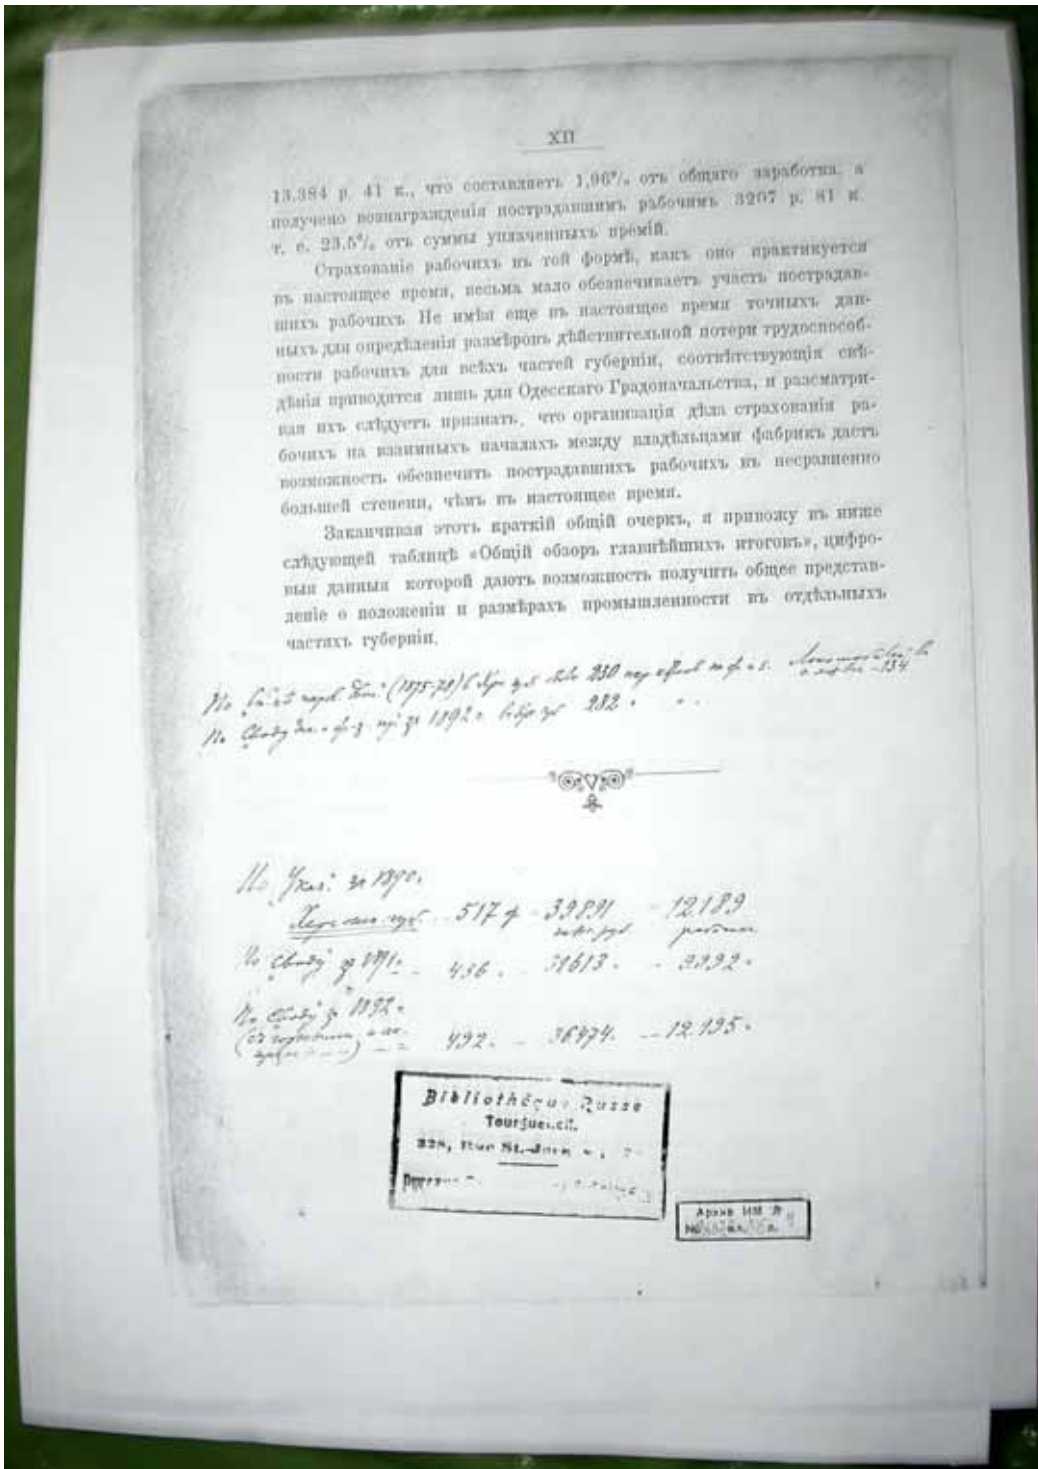 XII
13.384 р. 41 к., что составляетъ 1,96% отъ общаго заработка, а
получено вознагражденія пострадавшимъ рабочимъ 3207 р. 81 к.
т. е. 23,5% отъ суммы уплаченныхъ премій.
Страхованіе рабочихъ въ той формѣ, какъ оно практикуется
въ настоящее время, весьма мало обезпечиваетъ участь пострадав-
шихъ рабочихъ. Не имѣя еще въ настоящее время точныхъ дан-
ныхъ для опредѣленія размѣровъ дѣйствительной потери трудоспособ-
ности рабочихъ для всѣхъ частей губерніи, соотвѣтствующія свѣ-
дѣнія приводятся лишь для Одесскаго Градоначальства, и разсматри-
вая ихъ слѣдуетъ признать, что организація дѣла страхованія ра-
бочихъ на взаимныхъ началахъ между владѣльцами фабрикъ дастъ
возможность обезпечить пострадавшихъ рабочихъ въ несравненно
большей степени, чѣмъ въ настоящее время.
Заканчивая этотъ краткій общій очеркъ, я привожу въ ниже
слѣдующей таблицѣ «Общій обзоръ главнѣйшихъ итоговъ», цифро-
выя данныя которой даютъ возможность получить общее представ-
леніе о положеніи и размѣрахъ промышленности въ отдѣльныхъ
частяхъ губерніи.
По (1875-78) в 230 134
По Своду за 1892 г. 282
По Указ. за 1890.
Херсонск. губ. - 517 ф - 39891 - 12189
По Своду за 1891 г. - 436. - 31613. - 9992.
По Своду за 1892 г.
492. - 36474. - 12.195.
Bibliothèque Russe
Tourguenef.
328, Rue St.-Jacq
Архив ИМЛ
№